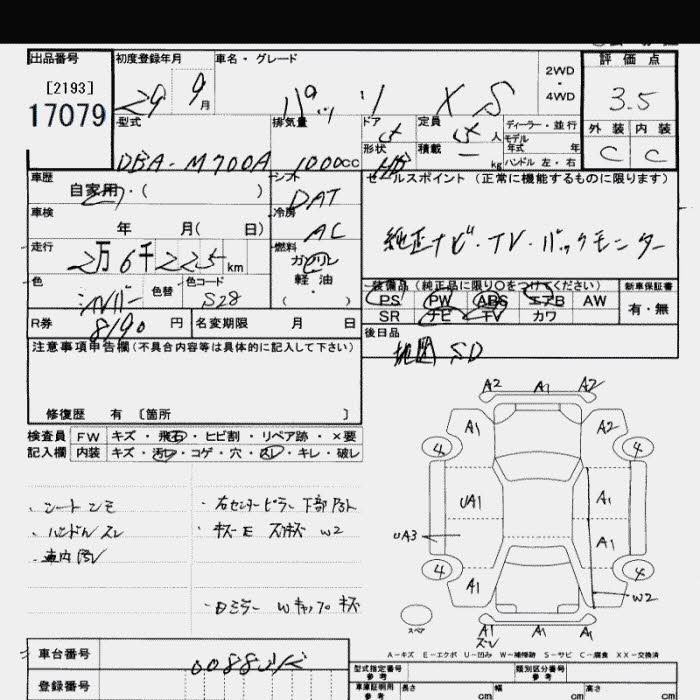 出品番号 初度登録年月 車名・グレード 評価点
[2193]
17079
29 9月 パッソ X S 2WD・4WD 3.5
型式 排気量 ドア 定員 人 ディーラー・並行 外装 内装
DBA-M700A 1000cc 形状 HB 積載 ー kg モデル年式 年 ハンドル 左・右 C C
車歴 シフト セールスポイント (正常に機能するものに限ります)
自家用・( ) DAT
車検 冷房
年 月( 日) AC
純正ナビ・TV・バックモニター
走行 燃料
2万6千225km ガソリン
色 色替 色コード 軽油 装備品 (純正品に限り○をつけてください) 新車保証書
シルバー S28 ( ・ ) PS PW ABS エアB AW 有・無
R券 8190円 名変期限 月 日 SR ナビ TV カワ
後日品
注意事項申告欄(不具合内容等は具体的に記入して下さい) 地図 SD
修復歴 有 〔箇所 〕
検査員 FW キズ・飛石・ヒビ割・リペア跡・×要
記入欄 内装 キズ・汚レ・コゲ・穴・スレ・キレ・破レ
・シートシミ
・ハンドルスレ
・車内汚レ
・右センターピラー下部
・キズE W2
・Dミラー Wキップ キズ
A2 A1 A2
A1 A2
4 4
UA1 A1
UA3 A1
4 4
A1 W2
スペア A1 A1
スレ
A-キズ E-エクボ U-凹み W-補修跡 S-サビ C-腐食 XX-交換済
車台番号 型式指定番号 参考 類別区分番号 参考
登録番号 車庫証明用 参考 長さ cm 幅 cm 高さ cm